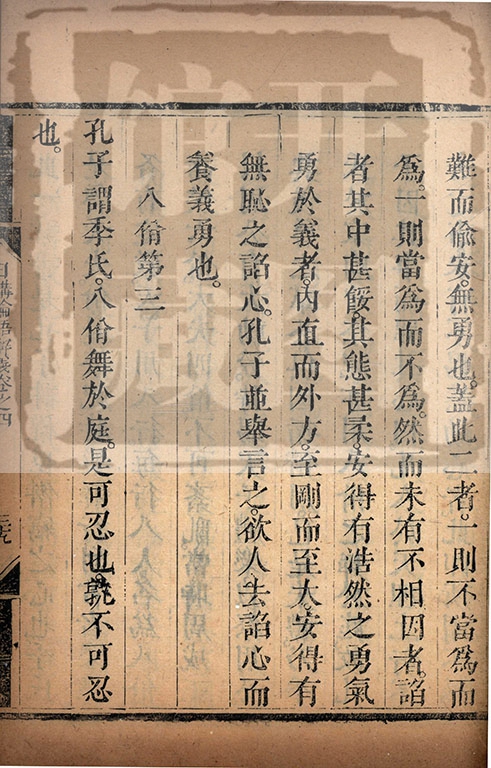 難而偷安。無勇也。蓋此二者。一則不當爲而
爲。一則當爲而不爲。然而未有不相因者。諂
者其中甚餒。其態甚柔。安得有浩然之勇氣
勇於義者。內直而外方。至剛而至大。安得有
無恥之諂心。孔子並舉言之。欲人去諂心而
養義勇也。
八佾第三
孔子謂季氏。八佾舞於庭。是可忍也。孰不可忍
也。
日講論語解義卷之四